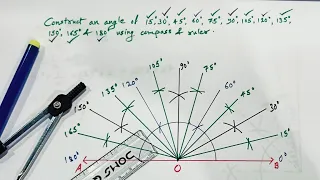 Construct an angle of 15°, 30°, 45°, 60°, 75°, 90°, 105°, 120°, 135°,
150°, 165° & 180° using compass & ruler.
105° 90° 75°
135° 120° 60° 45°
150° 30°
165° 15°
180° A O B 0°